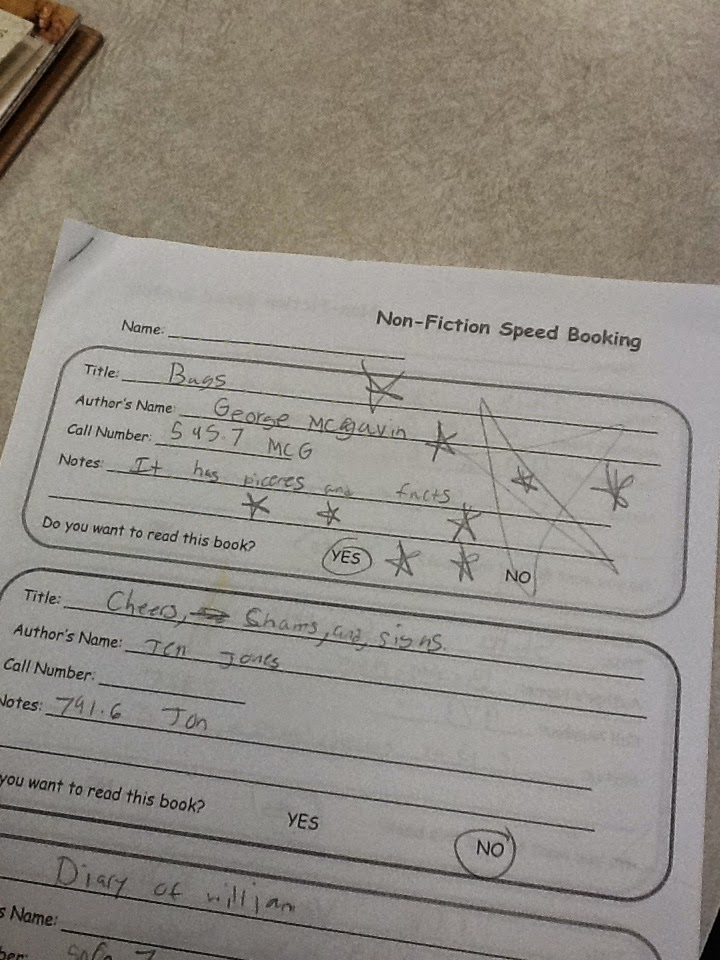 Non-Fiction Speed Booking
Name:
Title: Bugs
Author's Name: George McGavin
Call Number: 595.7 MCG
Notes: It has piceres and facts
Do you want to read this book? YES NO
Title: Cheers, Chams, and signs.
Author's Name: Jen Jones
Call Number:
Notes: 791.6 Jon
you want to read this book? YES NO
Diary of william
s Name:
ber: